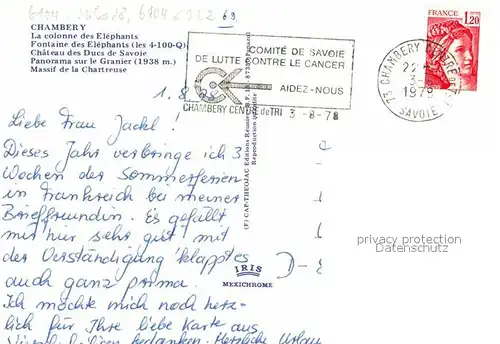 CHAMBERY
La colonne des Eléphants
Fontaine des Eléphants (les 4-100-Q)
Château des Ducs de Savoie
Panorama sur le Granier (1938 m.)
Massif de la Chartreuse
COMITÉ DE SAVOIE
DE LUTTE CONTRE LE CANCER
AIDEZ-NOUS
CHAMBERY CENTRE de TRI 3-8-78
FRANCE
1,20
73 CHAMBERY CENTRE DE
3-8
1978
SAVOIE
1.8.78
Liebe Frau Jackl!
Dieses Jahr verbringe ich 3
Wochen der Sommerferien
in Frankreich bei meiner
Brieffreundin. Es gefällt
mir hier sehr gut mit
der Verständigung klappt es
auch ganz prima.
Ich möchte mich noch herz-
lich für Ihre liebe Karte aus
bedanken. Herzliche Urlau
(F) CAP-THEOJAC Editions
Reproduction interdite
IRIS
MEXICHROME
D-8
privacy protection